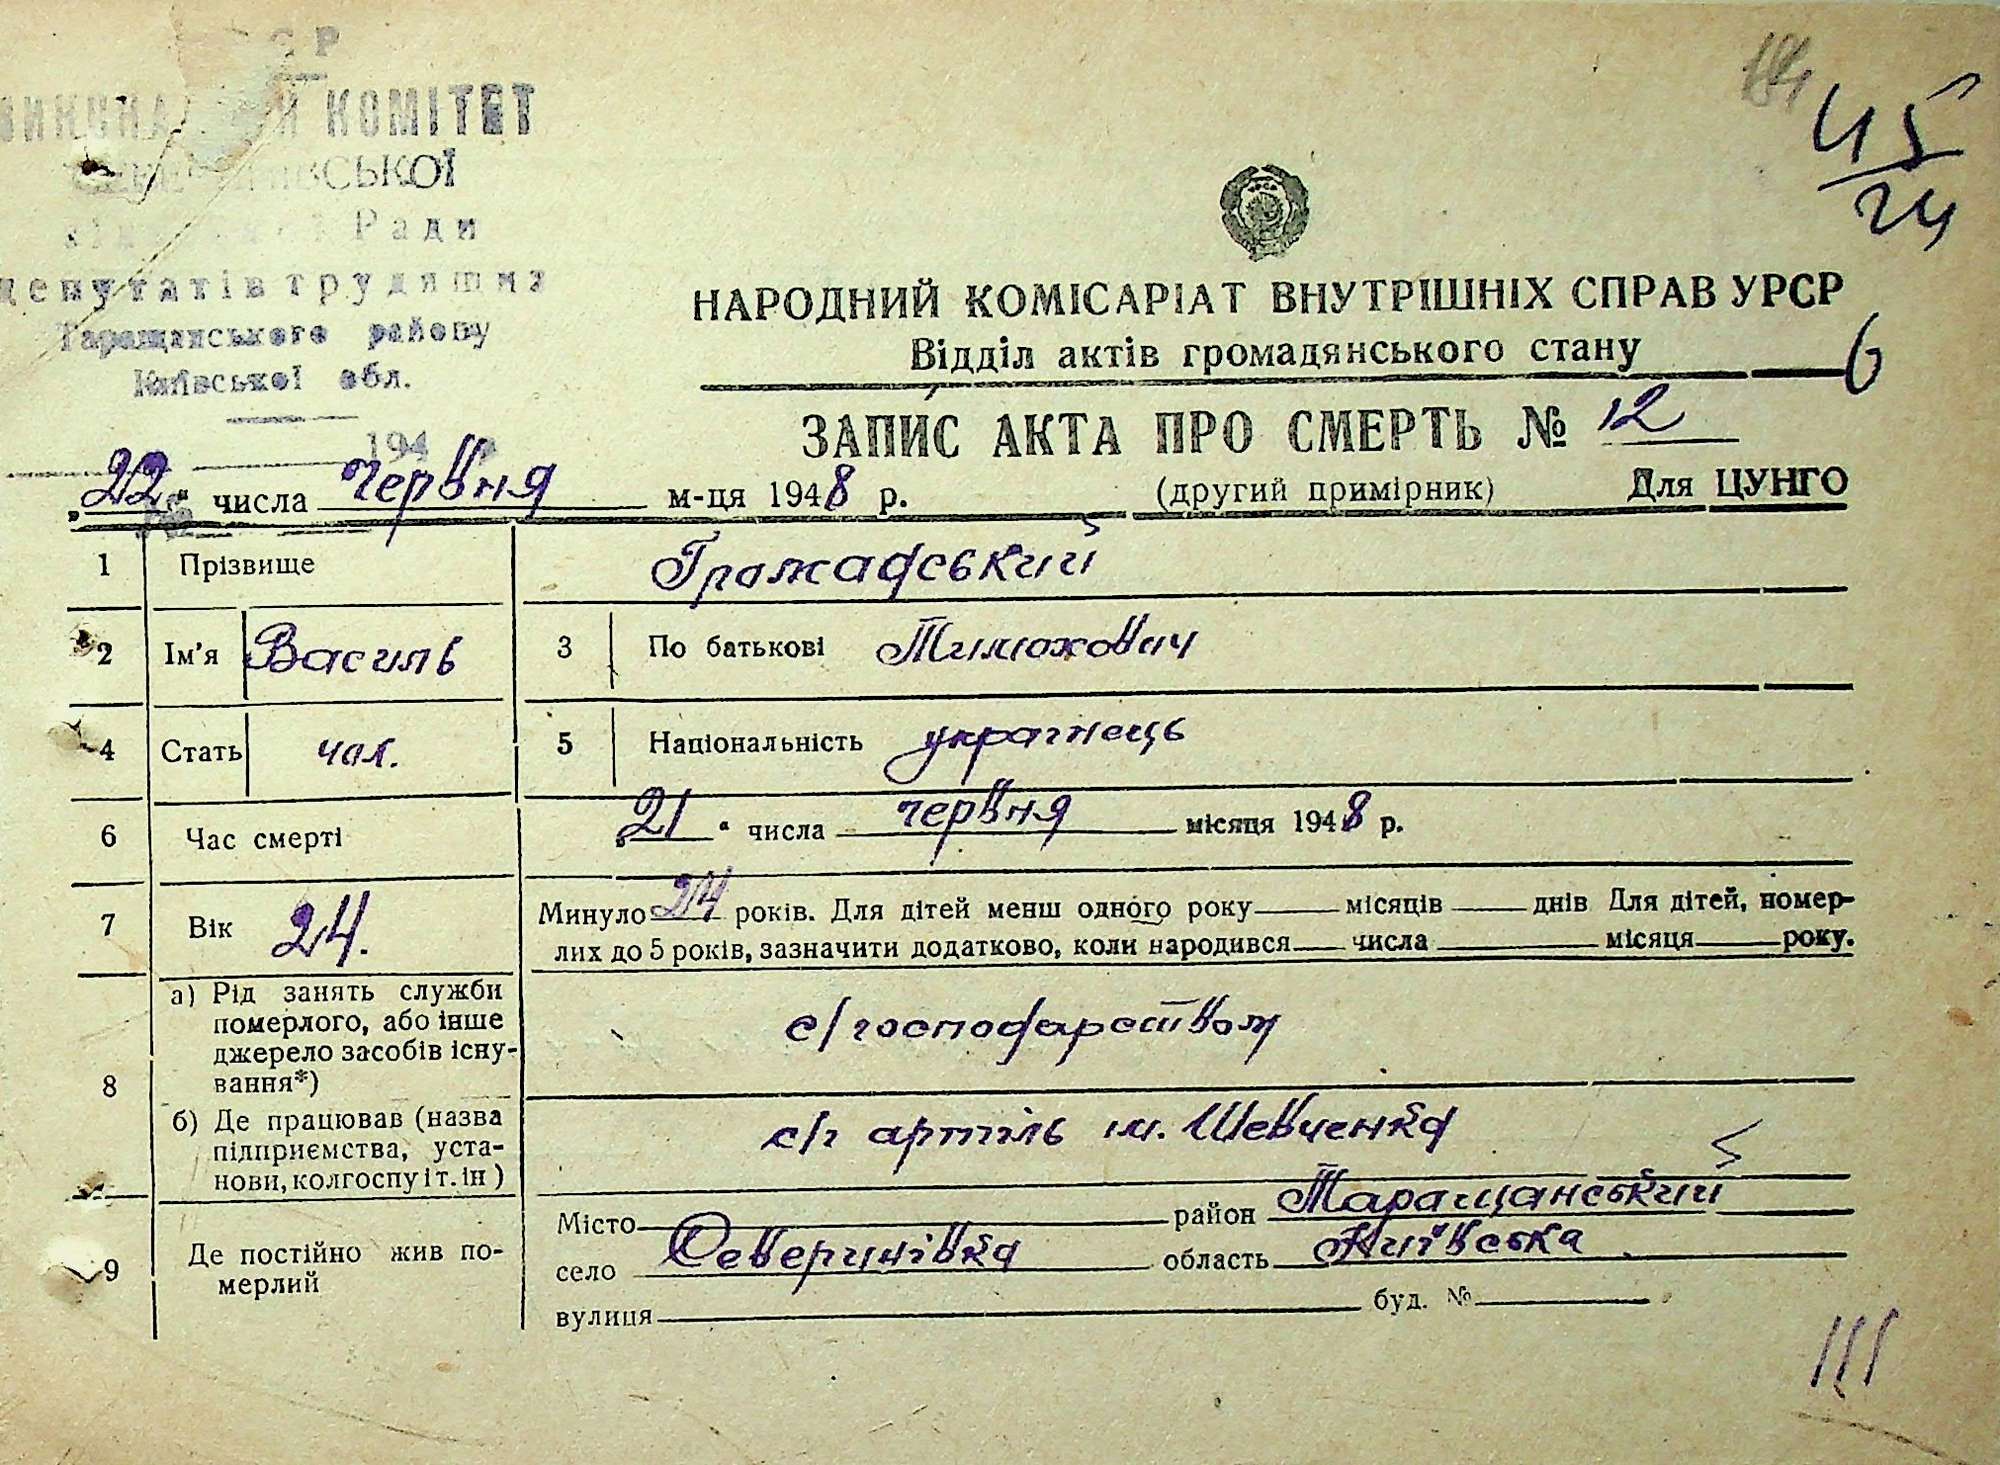 СР
ВИКОНА Й КОМІТЕТ
ІВСЬКОЇ
Ради
депутатів трудящих
Таращанського району
Київської обл.
194
45
24
НАРОДНИЙ КОМІСАРІАТ ВНУТРІШНІХ СПРАВ УРСР
Відділ актів громадянського стану
6
ЗАПИС АКТА ПРО СМЕРТЬ № 12
„22“ числа червня м-ця 1948 р. (другий примірник) Для ЦУНГО
1 Прізвище Гражадський
2 Ім'я Василь 3 По батькові Тимохович
4 Стать чол. 5 Національність українець
6 Час смерті „21“ числа червня місяця 1948 р.
7 Вік 24. Минуло 24 років. Для дітей менш одного року місяців днів Для дітей, помер-
лих до 5 років, зазначити додатково, коли народився числа місяця року.
8 а) Рід занять служби
померлого, або інше
джерело засобів існу-
вання*)
с/господарством
б) Де працював (назва
підприємства, уста-
нови, колгоспу і т. ін)
с/г артіль ім. Шевченка
9 Де постійно жив по-
мерлий
Місто район Таращанський
село Северинівка область Київська
вулиця буд. №